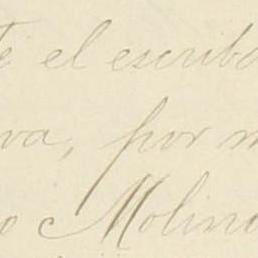 te el escriba
va, por m
o Molin